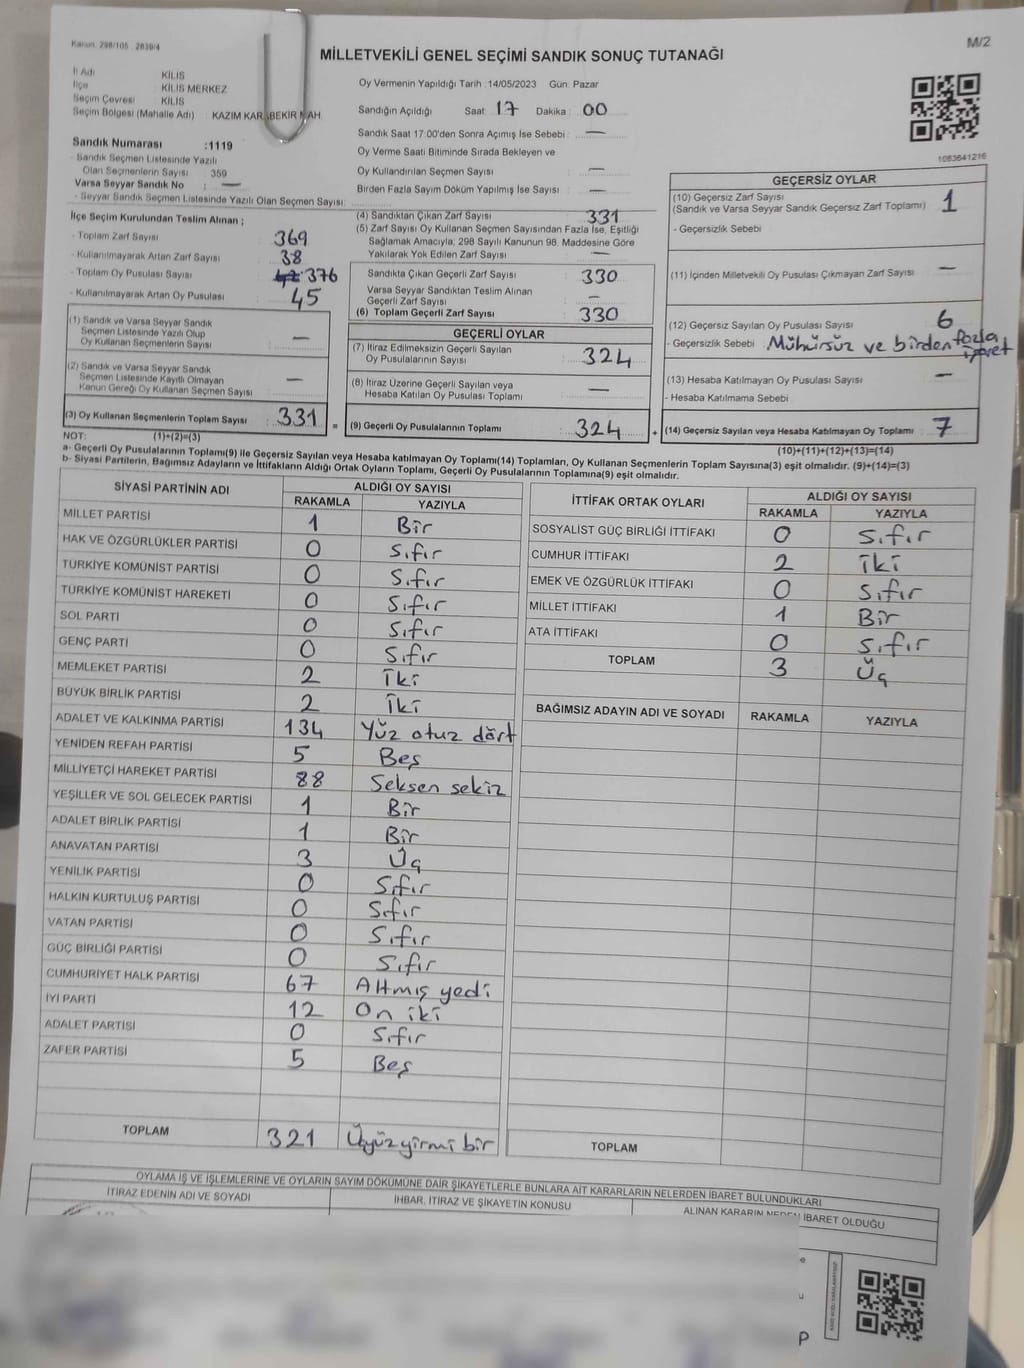 Kanun: 298/105 2839/4
M/2
MİLLETVEKİLİ GENEL SEÇİMİ SANDIK SONUÇ TUTANAĞI
İl Adı KİLİS
İlçe : KİLİS MERKEZ
Seçim Çevresi KİLİS
Seçim Bölgesi (Mahalle Adı) : KAZIM KARABEKİR MAH.
Sandık Numarası :1119
- Sandık Seçmen Listesinde Yazılı
Olan Seçmenlerin Sayısı : 359
Varsa Seyyar Sandık No : —
- Seyyar Sandık Seçmen Listesinde Yazılı Olan Seçmen Sayısı:
Oy Vermenin Yapıldığı Tarih :14/05/2023 Gün: Pazar
Sandığın Açıldığı Saat: 17 Dakika : 00
Sandık Saat 17:00'den Sonra Açımış İse Sebebi : —
Oy Verme Saati Bitiminde Sırada Bekleyen ve
Oy Kullandırılan Seçmen Sayısı : —
Birden Fazla Sayım Döküm Yapılmış İse Sayısı : —
1083641216
İlçe Seçim Kurulundan Teslim Alınan ;
- Toplam Zarf Sayısı 369
- Kullanılmayarak Artan Zarf Sayısı 38
- Toplam Oy Pusulası Sayısı 376
- Kullanılmayarak Artan Oy Pusulası 45
(1) Sandık ve Varsa Seyyar Sandık
Seçmen Listesinde Yazılı Olup
Oy Kullanan Seçmenlerin Sayısı —
(2) Sandık ve Varsa Seyyar Sandık
Seçmen Listesinde Kayıtlı Olmayan
Kanun Gereği Oy Kullanan Seçmen Sayısı —
(3) Oy Kullanan Seçmenlerin Toplam Sayısı : 331
(4) Sandıktan Çıkan Zarf Sayısı 331
(5) Zarf Sayısı Oy Kullanan Seçmen Sayısından Fazla İse, Eşitliği
Sağlamak Amacıyla, 298 Sayılı Kanunun 98. Maddesine Göre
Yakılarak Yok Edilen Zarf Sayısı : —
Sandıkta Çıkan Geçerli Zarf Sayısı : 330
Varsa Seyyar Sandıktan Teslim Alınan
Geçerli Zarf Sayısı : —
(6) Toplam Geçerli Zarf Sayısı : 330
GEÇERLİ OYLAR
(7) İtiraz Edilmeksizin Geçerli Sayılan
Oy Pusulalarının Sayısı : 324
(8) İtiraz Üzerine Geçerli Sayılan veya
Hesaba Katılan Oy Pusulası Toplamı : —
= (9) Geçerli Oy Pusulalarının Toplamı : 324
GEÇERSİZ OYLAR
(10) Geçersiz Zarf Sayısı
(Sandık ve Varsa Seyyar Sandık Geçersiz Zarf Toplamı) : 1
- Geçersizlik Sebebi
(11) İçinden Milletvekili Oy Pusulası Çıkmayan Zarf Sayısı : —
(12) Geçersiz Sayılan Oy Pusulası Sayısı : 6
- Geçersizlik Sebebi : Mühürsüz ve birden fazla işaret
(13) Hesaba Katılmayan Oy Pusulası Sayısı : —
- Hesaba Katılmama Sebebi
+ (14) Geçersiz Sayılan veya Hesaba Katılmayan Oy Toplamı : 7
NOT: (1)+(2)=(3) (10)+(11)+(12)+(13)=(14)
a- Geçerli Oy Pusulalarının Toplamı(9) ile Geçersiz Sayılan veya Hesaba katılmayan Oy Toplamı(14) Toplamları, Oy Kullanan Seçmenlerin Toplam Sayısına(3) eşit olmalıdır. (9)+(14)=(3)
b- Siyasi Partilerin, Bağımsız Adayların ve İttifakların Aldığı Ortak Oyların Toplamı, Geçerli Oy Pusulalarının Toplamına(9) eşit olmalıdır.
SİYASİ PARTİNİN ADI ALDIĞI OY SAYISI
RAKAMLA YAZIYLA
MİLLET PARTİSİ 1 Bir
HAK VE ÖZGÜRLÜKLER PARTİSİ 0 Sıfır
TÜRKİYE KOMÜNİST PARTİSİ 0 Sıfır
TÜRKİYE KOMÜNİST HAREKETİ 0 Sıfır
SOL PARTİ 0 Sıfır
GENÇ PARTİ 0 Sıfır
MEMLEKET PARTİSİ 2 İki
BÜYÜK BİRLİK PARTİSİ 2 İki
ADALET VE KALKINMA PARTİSİ 134 Yüz otuz dört
YENİDEN REFAH PARTİSİ 5 Beş
MİLLİYETÇİ HAREKET PARTİSİ 88 Seksen sekiz
YEŞİLLER VE SOL GELECEK PARTİSİ 1 Bir
ADALET BİRLİK PARTİSİ 1 Bir
ANAVATAN PARTİSİ 3 Üç
YENİLİK PARTİSİ 0 Sıfır
HALKIN KURTULUŞ PARTİSİ 0 Sıfır
VATAN PARTİSİ 0 Sıfır
GÜÇ BİRLİĞİ PARTİSİ 0 Sıfır
CUMHURİYET HALK PARTİSİ 67 Altmış yedi
İYİ PARTİ 12 On iki
ADALET PARTİSİ 0 Sıfır
ZAFER PARTİSİ 5 Beş
TOPLAM 321 Üçyüzyirmi bir
İTTİFAK ORTAK OYLARI ALDIĞI OY SAYISI
RAKAMLA YAZIYLA
SOSYALİST GÜÇ BİRLİĞİ İTTİFAKI 0 Sıfır
CUMHUR İTTİFAKI 2 İki
EMEK VE ÖZGÜRLÜK İTTİFAKI 0 Sıfır
MİLLET İTTİFAKI 1 Bir
ATA İTTİFAKI 0 Sıfır
TOPLAM 3 Üç
BAĞIMSIZ ADAYIN ADI VE SOYADI RAKAMLA YAZIYLA
TOPLAM
OYLAMA İŞ VE İŞLEMLERİNE VE OYLARIN SAYIM DÖKÜMÜNE DAİR ŞİKAYETLERLE BUNLARA AİT KARARLARIN NELERDEN İBARET BULUNDUKLARI
İTİRAZ EDENİN ADI VE SOYADI İHBAR, İTİRAZ VE ŞİKAYETİN KONUSU ALINAN KARARIN NEDEN İBARET OLDUĞU